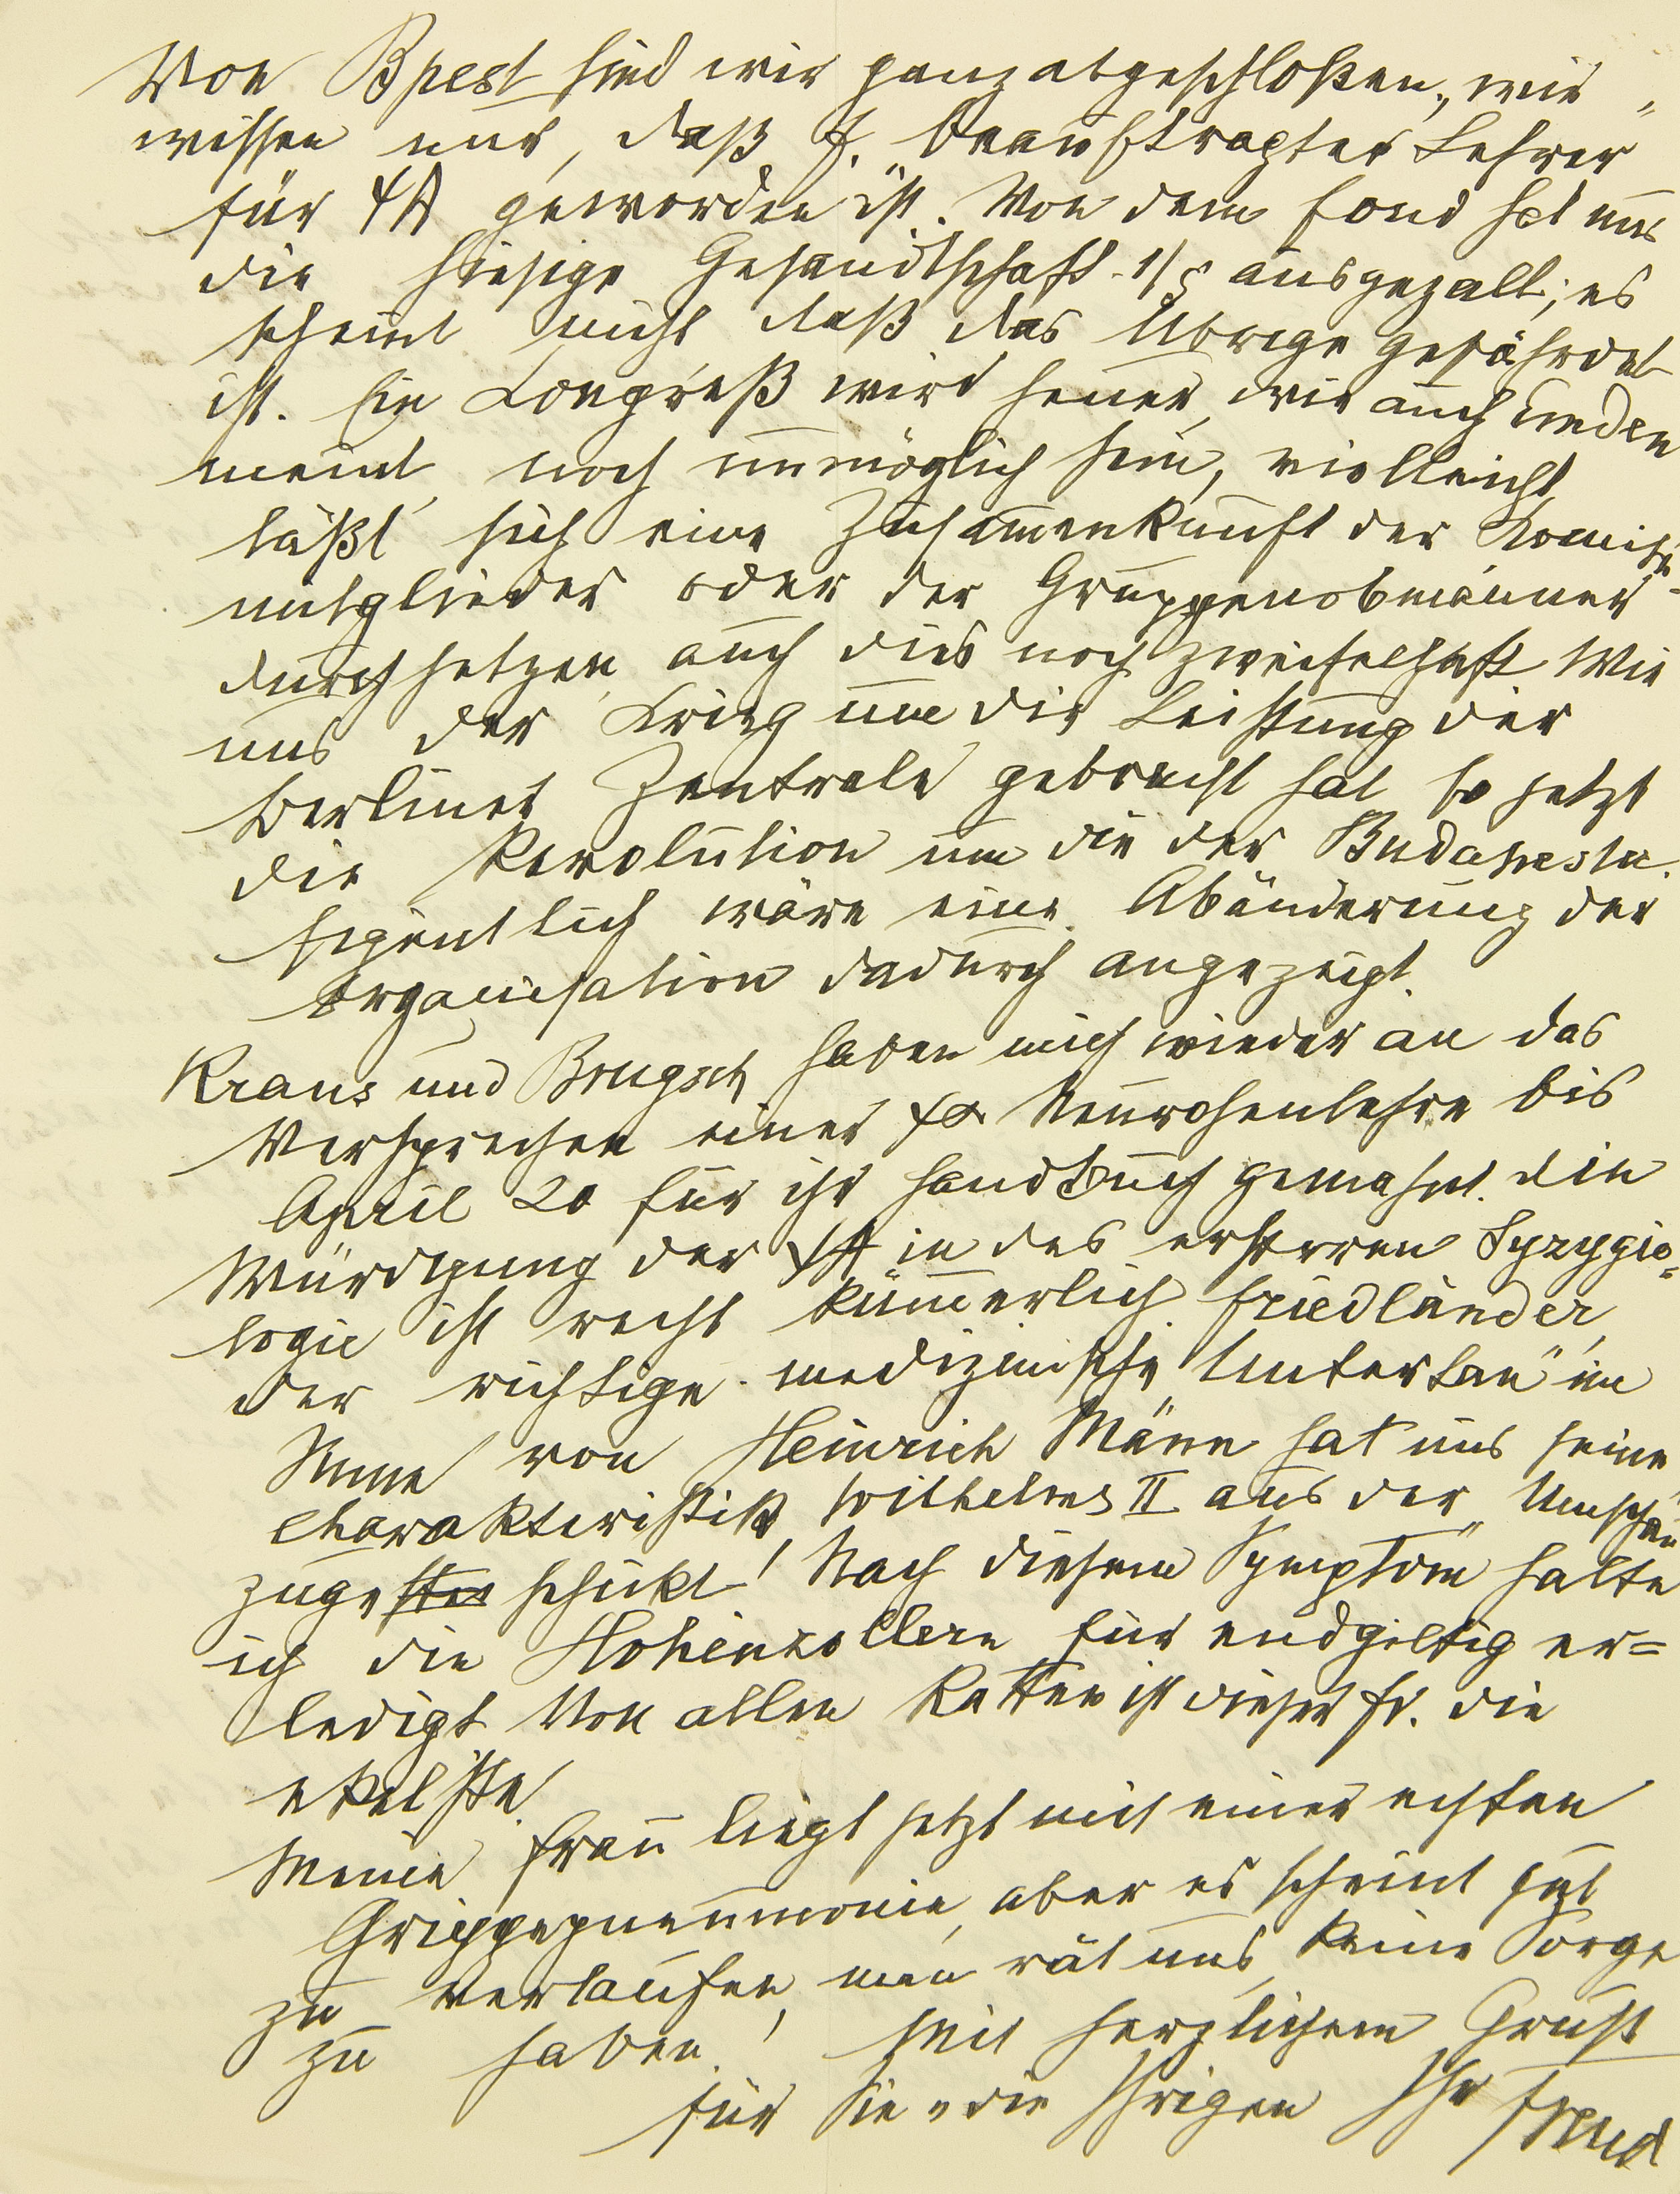 Von Bpest sind wir ganz abgeschloßen, wir
wissen nur, daß F. „beauftragter Lehrer“
für ΨΑ geworden ist. Von dem Fond hat uns
die hiesige Gesandtschaft 1/8 ausgezalt; es
scheint nicht daß das Übrige gefährdet
ist. Ein Kongreß wird heuer, wie auch
meint noch unmöglich sein, vielleicht
läßt sich eine Zusammenkunft der
mitglieder oder der Gruppenobmänner
durchsetzen, auch dies noch zweifelhaft. Wie
uns der Krieg um die Leistung der
Berliner Zentrale gebracht hat so jetzt
die Revolution um die der Budapester.
Eigentlich wäre eine Abänderung der
Organisation dadurch angezeigt.
Kraus und Brugsch haben mich wieder an das
Versprechen einer ψα Neurosenlehre bis
April 20 für ihr Handbuch gemahnt. Die
Würdigung der ΨΑ in des ersteren Syzygio-
logie ist recht kümmerlich. Friedländer,
der richtige medizinische „Untertan“ im
Sinne von Heinrich Mann hat uns seine
Charakteristik Wilhelms II aus der „Umschau“
zugeschickt! Nach diesem Symptom halte
ich die Hohenzollern für endgiltig er=
ledigt. Von allen Ratten ist dieser Fr. die
ekelste.
Meine Frau liegt jetzt mit einer echten
Grippepneumonie, aber es scheint gut
zu verlaufen, man rät uns, keine Sorge
zu haben! Mit herzlichem Gruß
für Sie u die Ihrigen Ihr Freud